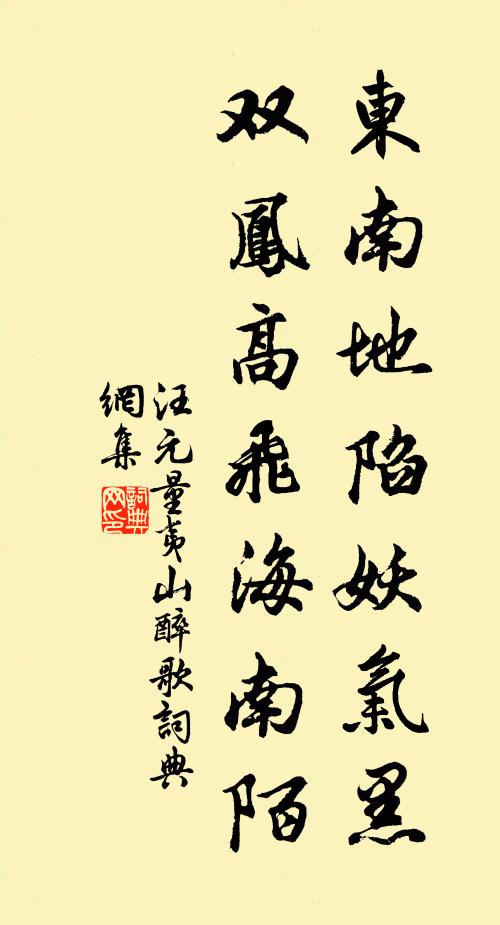 東南地陷妖氣黑
双鳳高飛海南陌
汪元量夷山醉歌詞典
網集
詞典网印